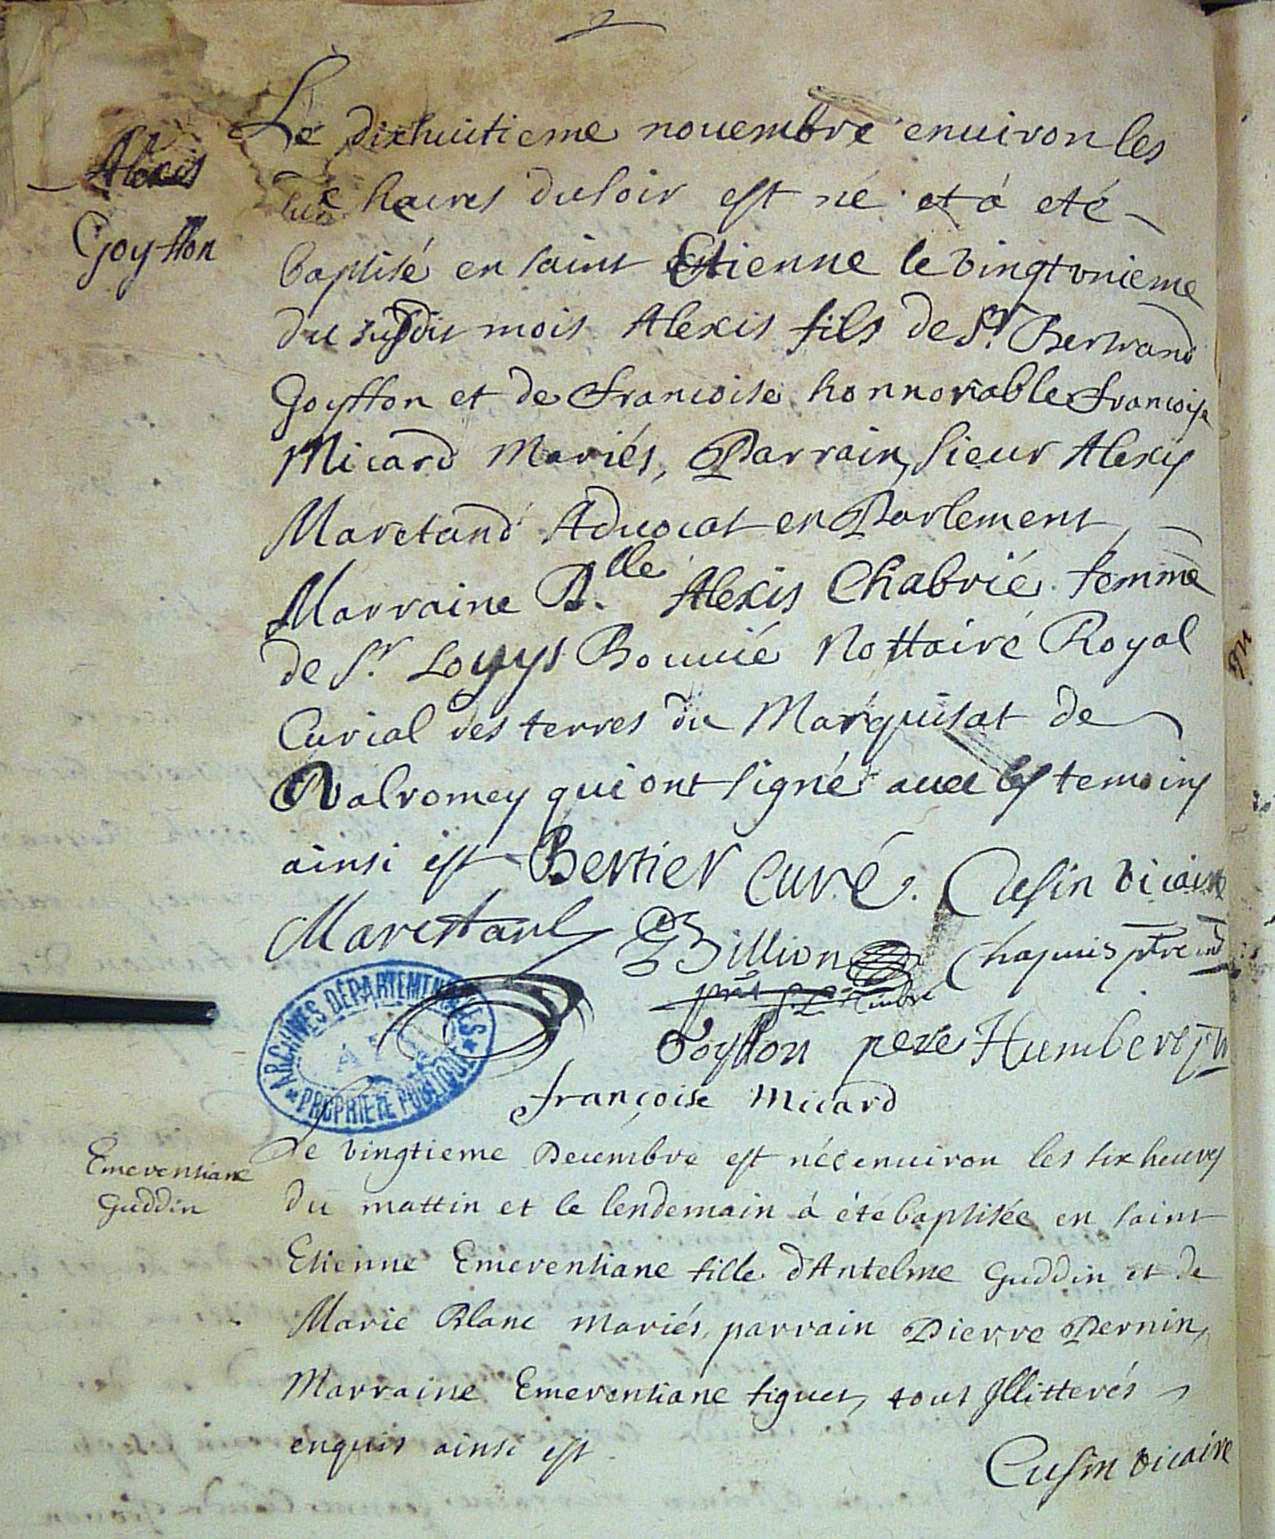 Alexis
Goyffon
Le dixhuitieme nouembre enuiron les
heures du soir est né et à eté
baptisé en saint Etienne le vingtunieme
du susdit mois Alexis fils de Sr. Bertrand
Goyffon et de francoise honnorable francoise
Micard Mariés, Parrain, sieur Alexis
Maretand Aduocat en Parlement
Marraine D.lle Alexis Chabrié femme
de Sr. Loÿys Bouuié Nottaire Royal
Curial des terres du Marquisat de
Valromey qui ont signé auec les temoins
ainsi est Bertier Curé. Cusin vicaire
Marestand Billion Chapuis ptre
Goyffon pere Humbert
françoise Micard
ARCHIVES DÉPARTEMENTALES
AIN
PROPRIÉTÉ PUBLIQUE
Emerentiane
Guddin
Le vingtieme Decembre est née enuiron les six heures
du mattin et le lendemain à été baptisée en saint
Etienne Emerentiane fille d'Antelme Guddin et de
Marie Blanc mariés, parrain Pierre Pernin,
Marraine Emerentiane figuet, tous Illitterés
enquis ainsi est
Cusin vicaire